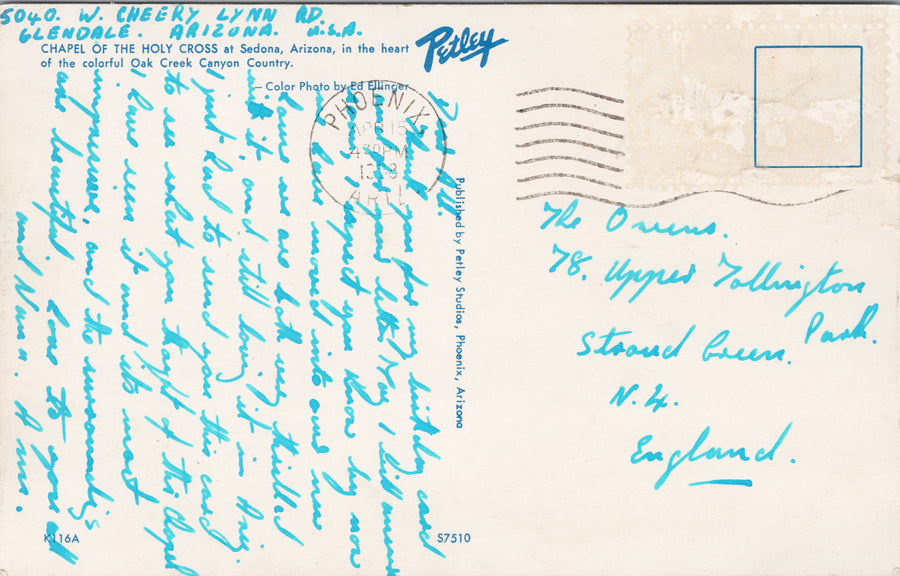 5040. W. CHEERY LYNN RD.
GLENDALE. ARIZONA. U.S.A.
CHAPEL OF THE HOLY CROSS at Sedona, Arizona, in the heart
of the colorful Oak Creek Canyon Country.
—Color Photo by Ed Ellinger
Petley
PHOENIX
APR 15
430 PM
ARIZ.
Dear All.
Thank you for my birthday card
and for your letter I will answer
soon, I expect you know by now
we have moved into our new
home we are both very thrilled
with it and still loving it in Ariz.
I just had to send you this card
to see what you thought of this chapel
I have seen it and its most
impressive, and the surrounding's
are beautiful. Love to you all
and Nana.
Published by Petley Studios, Phoenix, Arizona
The Owens.
78. Upper Tollington
Park.
Stroud Green.
N. 4.
England.
K116A
S7510